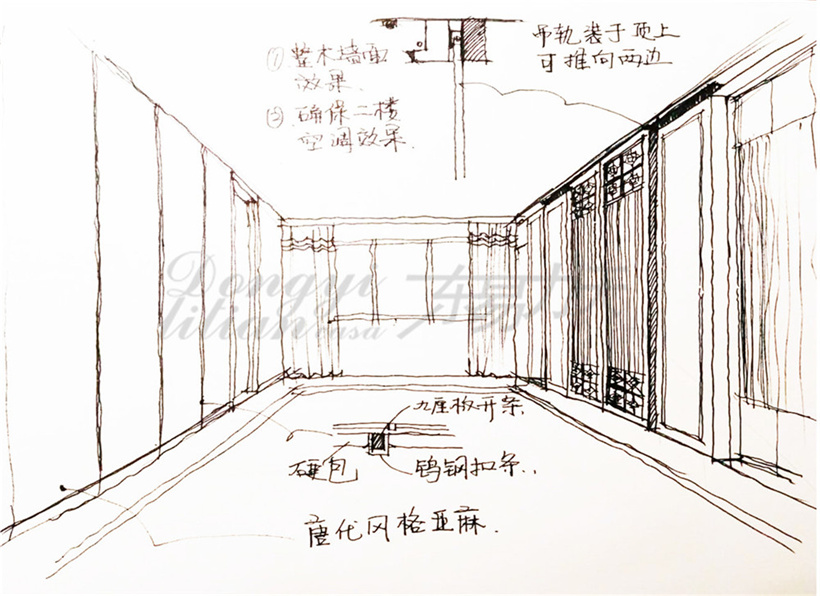 ①整木墙面
效果.
②确保二楼
空调效果.
吊轨装于顶上
可推向两边
Dongyi
lilian casa
东易力天
九厘板开条
硬包
钨钢扣条..
唐代风格亚麻.